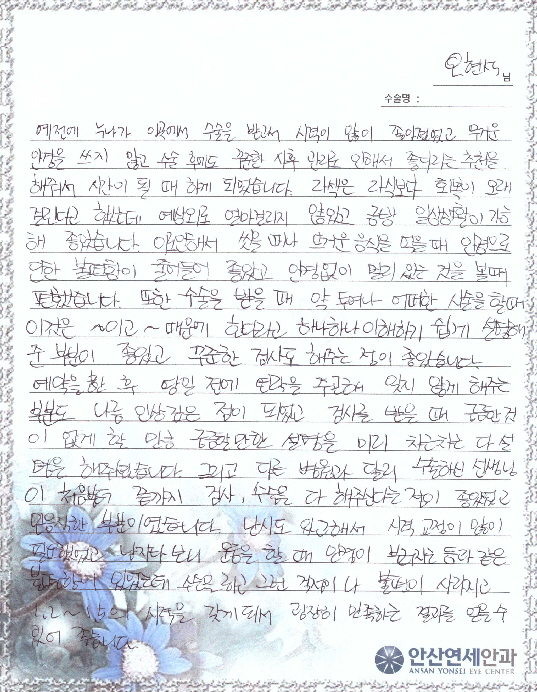 오현식님
수술명 :
예전에 누나가 이곳에서 수술을 받고서 시력이 많이 좋아졌었고 무거운
안경을 쓰지 않고 수술 후에도 꾸준한 사후 관리로 인해서 좋다라는 추천을
해줘서 시간이 될 때 하게 되었습니다. 라섹은 라식보다 회복이 오래
걸린다고 했는데 예상외로 얼마걸리지 않았고 금방 일상생활이 가능
해 좋았습니다. 이로인해서 씻을 때나 뜨거운 음식을 먹을 때 안경으로
인한 불편함이 줄어들어 좋았고 안경없이 멀리 있는 것을 볼때
편했습니다. 또한 수술을 받을 때 약 투여나 어떠한 시술을 할때
이것은 ~이고 ~ 때문에 한다라고 하나하나 이해하기 쉽게 설명해
준 부분이 좋았고 꾸준한 검사도 해주는 점이 좋았습니다.
예약을 한 후 당일 전에 연락을 주곤해서 잊지 않게 해주는
부분도 나름 인상 깊은 점이 되었고 검사를 받을 때 궁금한 것
이 없게 할 만큼 궁금할만한 설명을 미리 차근차근 다 설
명을 해주었습니다. 그리고 다른 병원과 달리 수술하신 선생님
이 처음부터 끝까지 검사, 수술을 다 해주신다는 점이 좋았었고
믿음직한 부분이었습니다. 난시도 있곤해서 시력 교정이 많이
필요했었고 남자다 보니 운동을 할 때 안경이 부러지는 등과 같은
불편함이 있었는데 수술을 하고 그런 걱정이나 불편이 사라지고
1.2~1.5의 시력을 갖게 돼서 굉장히 만족하는 결과를 얻을 수
있어 좋습니다.
안산연세안과
ANSAN YONSEI EYE CENTER